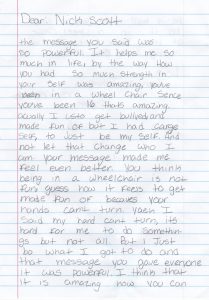 Dear: Nick Scott
the message you said was
so powerful. It helps me so
much in life by the way How
you had so much strength in
your self was amazing. you've
in a wheel Chair Sence
you've been 16 thats amazing.
usually I use to get bullyed and
made fun of but I had
self, to Just be my self. And
not let that change who I
am your message made me
Feel even better. You think
being in a wheelchair is not
fun guess how it Feels to get
made fun of because your
hands cant turn. yeah I
Said my hand cant turn its
hard for me to do somethin
gs but not all. But I Just
do what I got to do and
that message you gave everyone
it was powerful. I think that
it is amazing how you can